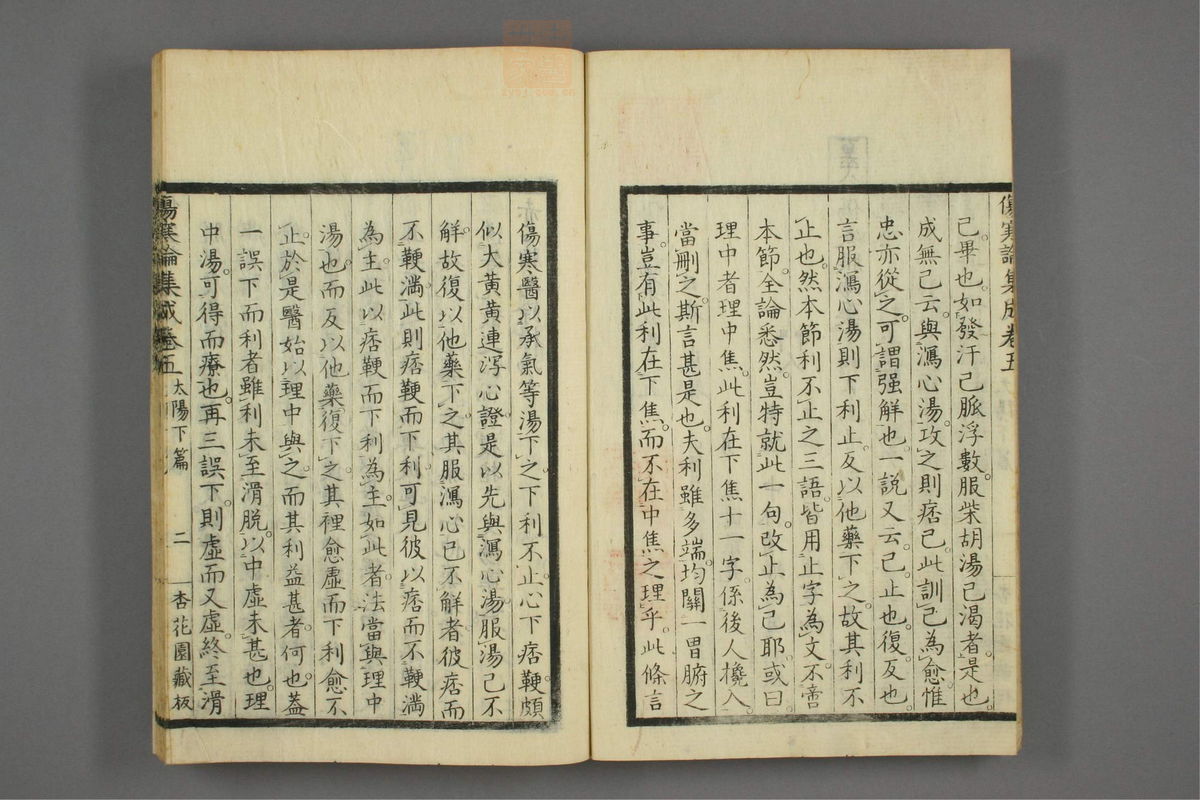 傷寒論集成卷五
已畢也。如發汗已脈浮數。服柴胡湯已渴者。是也
成無已云。與瀉心湯。攻之則痞已。此訓已為愈。惟
忠亦從之。可謂強解也。一說又云。已。止也。復。反也
言服瀉心湯則下利止。反以他藥下之。故其利不
止也。然本節利不止之三語。皆用止字為文。不啻
本節。全論悉然。豈特就此一句。改止為已耶。或曰
理中者理中焦。此利在下焦十一字。係後人攙入。
當刪之。斯言甚是也。夫利雖多端。均關一胃腑之
事。豈有此利在下焦。而不在中焦之理乎。此條言
傷寒醫以承氣等湯下之。下利不止。心下痞鞕。頗
似大黃黃連瀉心證。是以先與瀉心湯。服湯已不
解。故復以他藥下之。其服瀉心已不解者。彼痞而
不鞕滿。此則痞鞕而下利。可見彼以痞而不鞕滿
為主。此以痞鞕而下利為主。如此者。法當與理中
湯也。而反以他藥復下之。其裡愈虛而下利愈不
止。於是醫始以理中與之。而其利益甚者。何也。蓋
一誤下而利者。雖利未至滑脫。以中虛未甚也。理
中湯可得而療也。再三誤下。則虛而又虛。終至滑
傷寒論集成卷五 太陽下篇 二 杏花園藏板